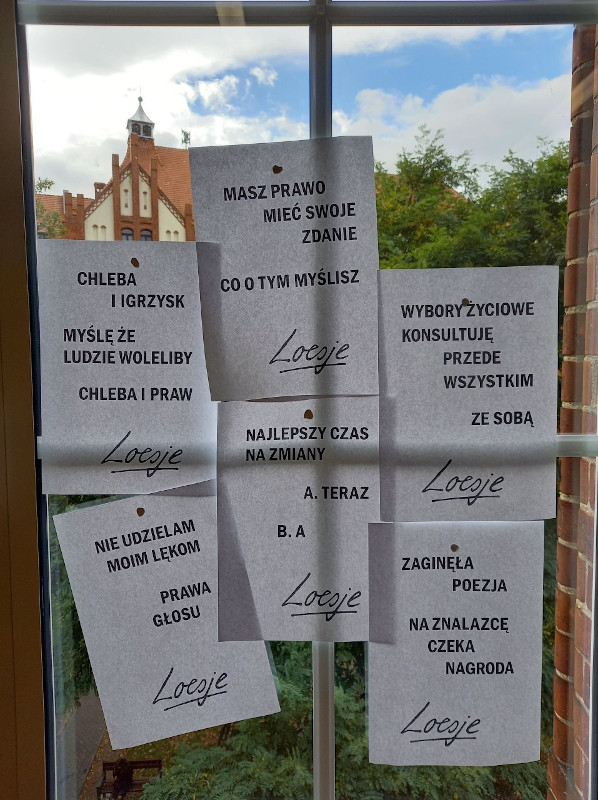 MASZ PRAWO
MIEĆ SWOJE
ZDANIE
CO O TYM MYŚLISZ
Loesje
CHLEBA
I IGRZYSK
MYŚLĘ ŻE
LUDZIE WOLELIBY
CHLEBA I PRAW
Loesje
WYBORY ŻYCIOWE
KONSULTUJĘ
PRZEDE
WSZYSTKIM
ZE SOBĄ
Loesje
NAJLEPSZY CZAS
NA ZMIANY
A. TERAZ
B. A
Loesje
NIE UDZIELAM
MOIM LĘKOM
PRAWA
GŁOSU
Loesje
ZAGINĘŁA
POEZJA
NA ZNALAZCĘ
CZEKA
NAGRODA
Loesje